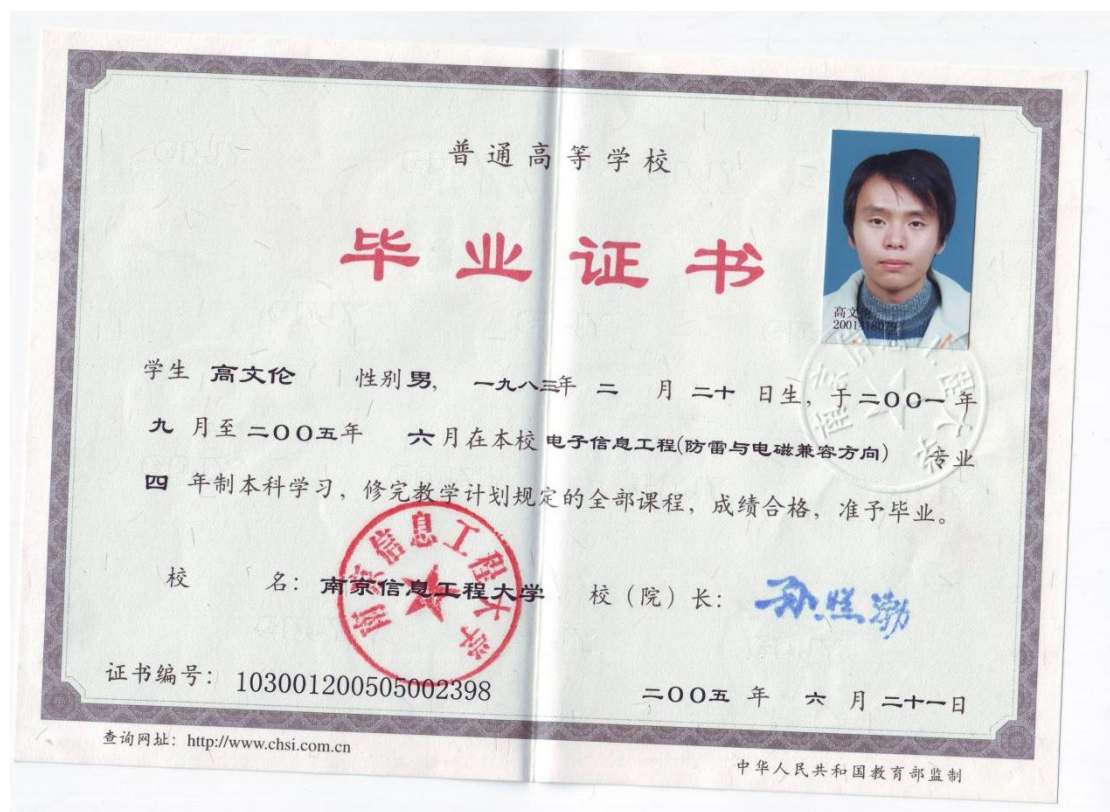 普通高等学校
毕业证书
高文
2001118079
学生 高文伦 性别 男, 一九八三年 二 月 二十 日生, 于二〇〇一年
九 月至 二〇〇五年 六月在本校 电子信息工程(防雷与电磁兼容方向) 专业
四 年制本科学习, 修完教学计划规定的全部课程, 成绩合格, 准予毕业。
校 名: 南京信息工程大学 校(院)长: 孙照渤
南京信息工程大学
证书编号: 103001200505002398
二〇〇五 年 六 月 二十一日
查询网址: http://www.chsi.com.cn
中华人民共和国教育部监制